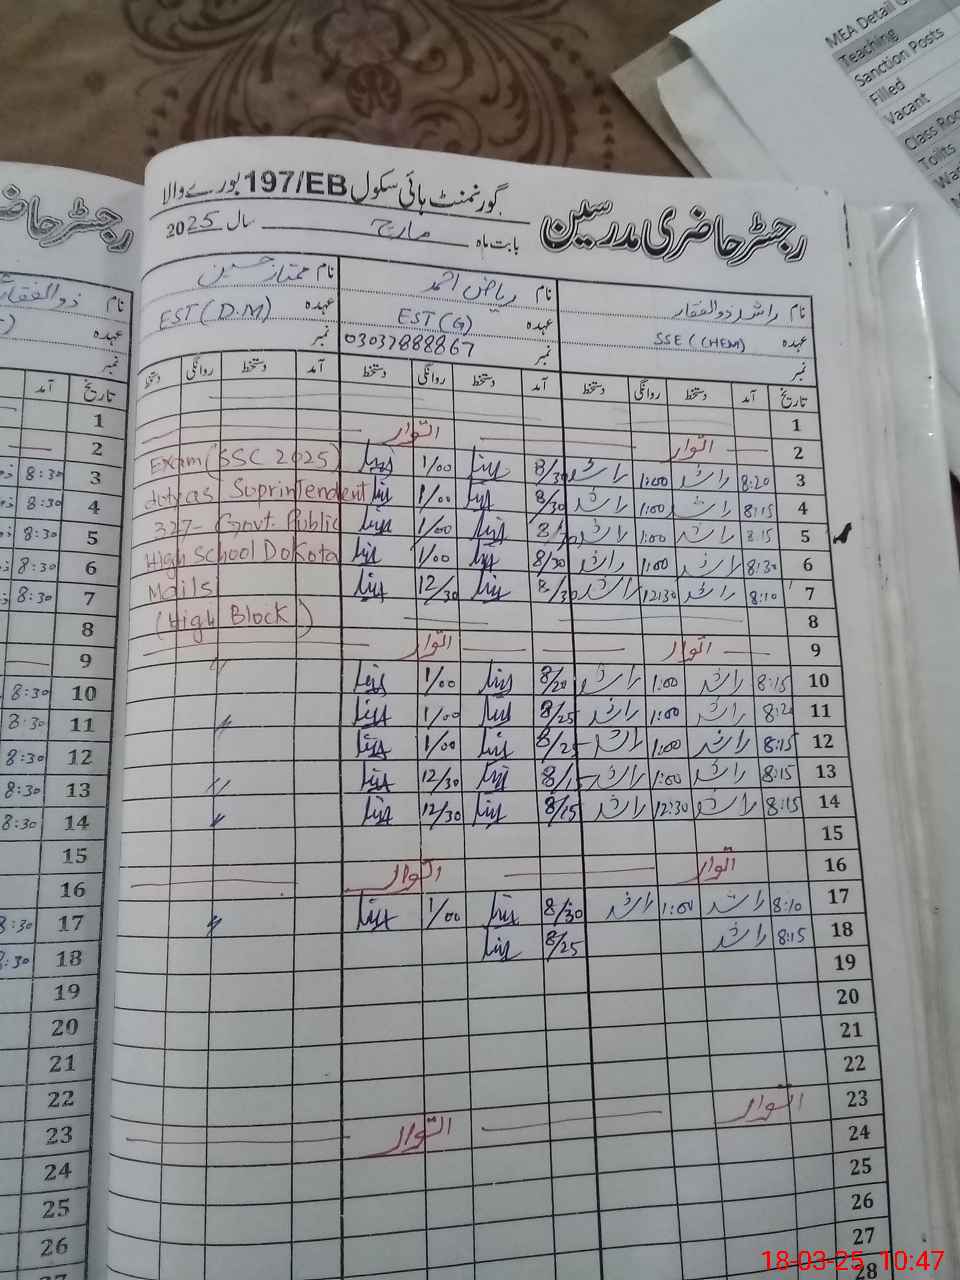 MEA Detail
Teaching
Sanction Posts
Filled
Vacant
Class Roo
گورنمنٹ ہائی سکول 197/EB بورے والا
رجسٹر حاضری مدرسین
بابت ماہ مارچ سال 2025
نام راشد ذوالفقار نام ریاض احمد نام ممتاز حسین
عہدہ SSE (CHEM) عہدہ EST (G) عہدہ EST (D.M)
نمبر نمبر 03037888867 نمبر
تاریخ آمد دستخط روانگی دستخط آمد دستخط روانگی دستخط آمد دستخط روانگی دستخط
1
2 اتوار اتوار
3 8:20 راشد 1:00 راشد 8/30 1/00 Exam (SSC 2025)
4 8:15 راشد 1:00 راشد 8/30 1/00 duty as Suprintendent
5 8:15 راشد 1:00 راشد 1/00 327- Govt. Public
6 8:30 راشد 1:00 راشد 8/30 1/00 High School DoKota
7 8:10 راشد 12:30 راشد 8/30 12/30 Mails
8 (High Block)
9 اتوار اتوار
10 8:15 راشد 1:00 راشد 8/20 1/00
11 راشد 1:00 راشد 8/25 1/00 〃
12 8:15 راشد 1:00 راشد 8/25 1/00
13 8:15 راشد 1:00 راشد 8/15 12/30 〃
14 8:15 راشد 12:30 راشد 8/15 12/30 〃
15
16 اتوار اتوار
17 8:10 راشد 1:00 راشد 8/30 1/00 〃
18 8:15 راشد 8/25
19
20
21
22
23 اتوار اتوار
24
25
26
27
28
نام ذوالفقار
عہدہ
نمبر
تاریخ آمد
1
2
3 8:30
4 8:30
5 8:30
6 8:30
7 8:30
8
9
10 8:30
11 8:30
12 8:30
13 8:30
14 8:30
15
16
17 8:30
18 8:30
19
20
21
22
23
24
25
26
18-03-25 10:47